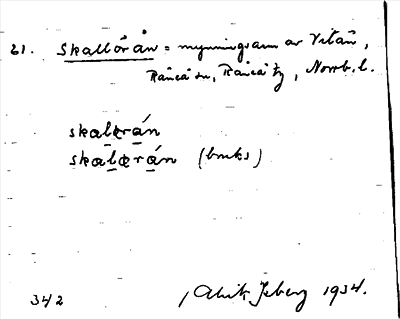 21. Skallörån = mynningsarm av Vitån,
Råneå sn, Råneå tg, Norrb. l.
skalɛrán
skalærán (bruks)
342 1934.